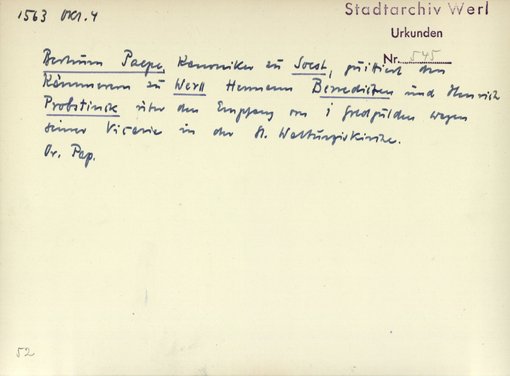 1563 Okt. 4
Stadtarchiv Werl
Urkunden
Nr. 545
Bertram Paepe, Kanoniker zu Soest, quittiert den
Kämmerern zu Werll Hermann Benedickten und Henrich
Probstinck über den Empfang von 1 Goldgulden wegen
seiner Vicarie in der St. Walburgiskirche.
Or. Pap.
52